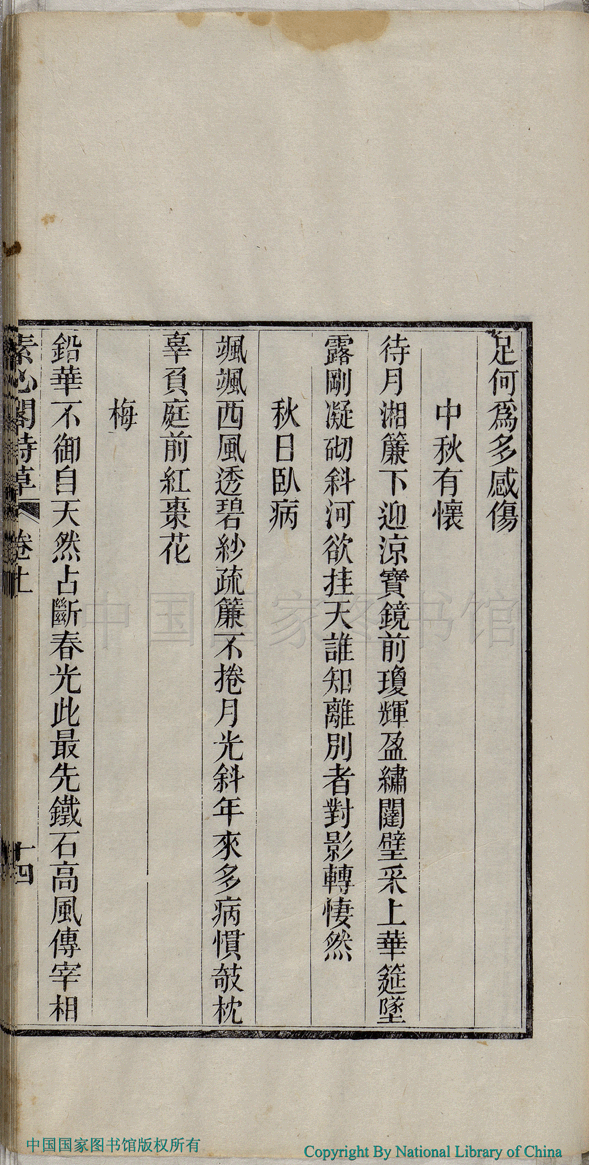 足何為多感傷
中秋有懷
待月湘簾下迎涼寶鏡前瓊輝盈繡闥璧采上華筵墜
露剛凝砌斜河欲挂天誰知離別者對影轉悽然
秋日臥病
颯颯西風透碧紗疏簾不捲月光斜年來多病慣攲枕
辜負庭前紅棗花
梅
鉛華不御自天然占斷春光此最先鐵石高風傳宰相
素心閣詩草 卷上 十四
中国国家图书馆
中国国家图书馆版权所有
Copyright By National Library of China